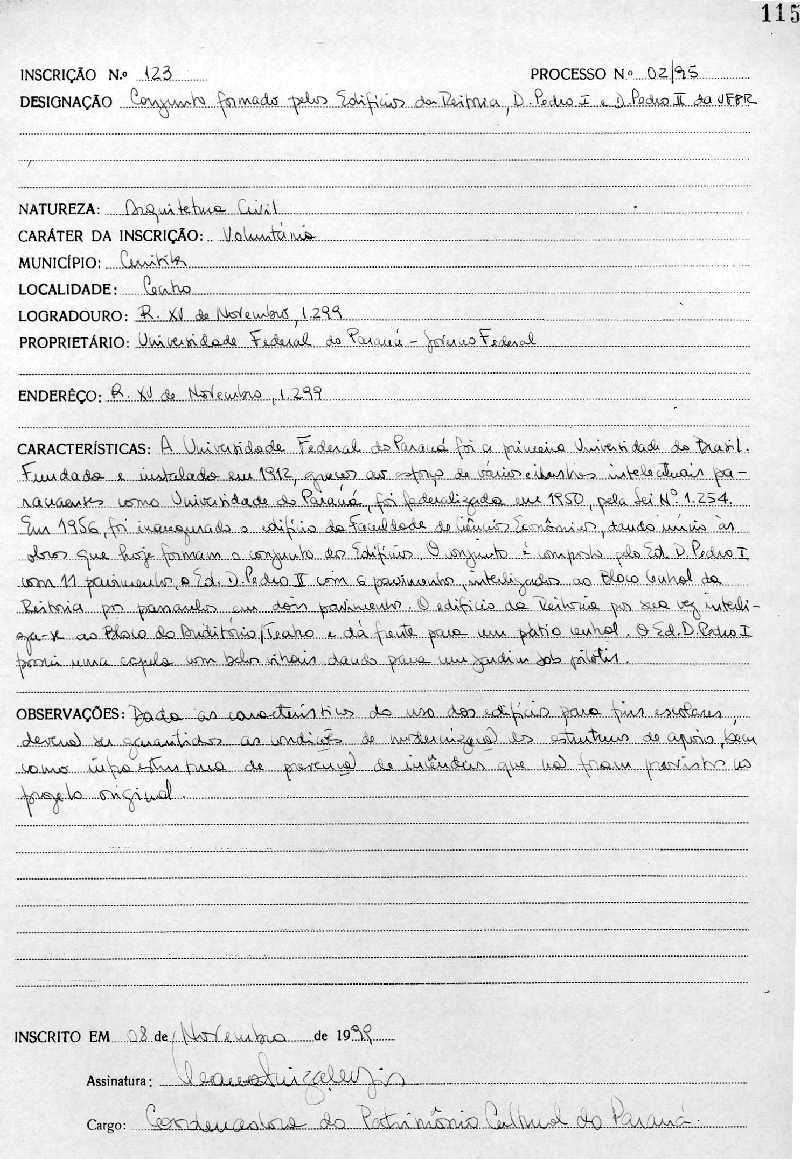 115
INSCRIÇÃO N.º 123 PROCESSO N.º 02/95
DESIGNAÇÃO Conjunto formado pelos Edifícios da Reitoria, D. Pedro I e D. Pedro II da UFPR
NATUREZA: Arquitetura Civil
CARÁTER DA INSCRIÇÃO: Voluntária
MUNICÍPIO: Curitiba
LOCALIDADE: Centro
LOGRADOURO: R. XV de Novembro, 1.299
PROPRIETÁRIO: Universidade Federal do Paraná - Governo Federal
ENDERÊÇO: R. XV de Novembro, 1.299
CARACTERÍSTICAS: A Universidade Federal do Paraná foi a primeira Universidade do Brasil.
Fundada e instalada em 1912, graças ao esforço de vários ilustres intelectuais pa-
ranaenses como Universidade do Paraná, foi federalizada em 1950, pela Lei Nº 1.254.
Em 1956, foi inaugurado o edifício da Faculdade de Ciências Econômicas, dando início às
obras que hoje formam o conjunto dos Edifícios. O conjunto é composto pelo Ed. D. Pedro I
com 11 pavimentos, o Ed. D. Pedro II com 6 pavimentos, interligados ao Bloco Central da
Reitoria por passarelas em dois pavimentos. O edifício da Reitoria por sua vez interli-
ga-se ao Bloco do Auditório/Teatro e dá frente para um pátio central. O Ed. D. Pedro I
possui uma capela com belos vitrais dando para um jardim sob pilotis.
OBSERVAÇÕES: Dada as características do uso dos edifícios para fins escolares,
deverá ser garantidos as condições de modernização das estruturas de apoio, bem
como infra-estrutura de prevenção de incêndios que não foram previstos no
projeto original.
INSCRITO EM 08 de Novembro de 1999
Assinatura:
Cargo: Coordenadora do Patrimônio Cultural do Paraná.